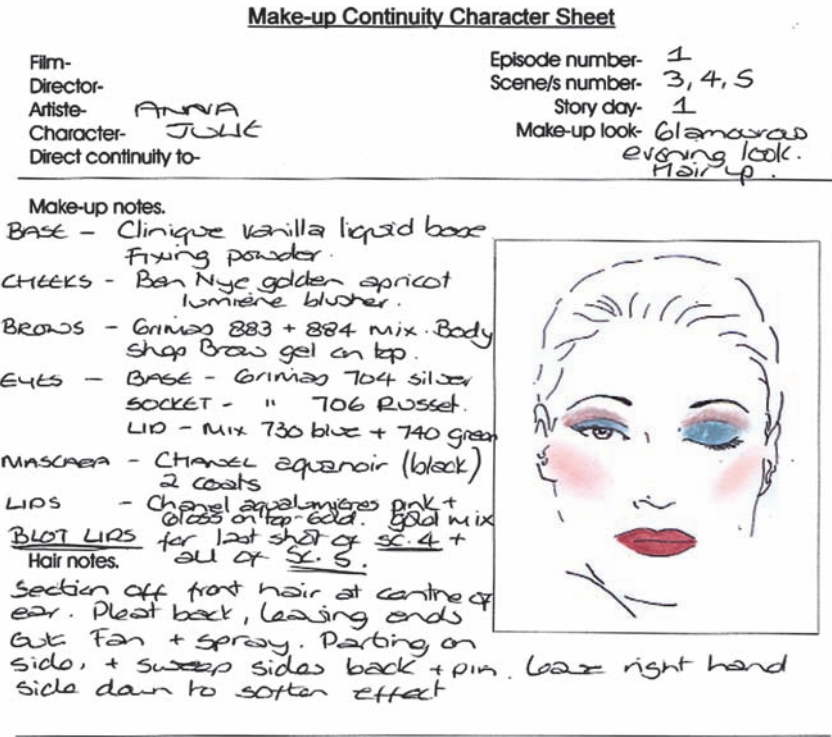 Make-up Continuity Character Sheet
Film-
Director-
Artiste- ANNA
Character- JULIE
Direct continuity to-
Episode number- 1
Scene/s number- 3, 4, 5
Story day- 1
Make-up look- Glamorous
evening look.
Hair up.
Make-up notes.
BASE - Clinique vanilla liquid base
Fixing powder.
CHEEKS - Ben Nye golden apricot
lumiere blusher.
BROWS - Grimas 883 + 884 mix. Body
shop Brow gel on top.
EYES - BASE - Grimas 704 silver
SOCKET - " 706 Russet.
LID - Mix 730 blue + 740 green
MASCARA - CHANEL aquanoir (black)
2 coats
LIPS - Chanel pink +
Gloss on top-Gold. Gold mix
BLOT LIPS for last shot of sc. 4 +
all of Sc. 5.
Hair notes.
Section off front hair at centre of
ear. Pleat back, leaving ends
out. Fan + spray. Parting on
side, + sweep sides back + pin. Leave right hand
side down to soften effect